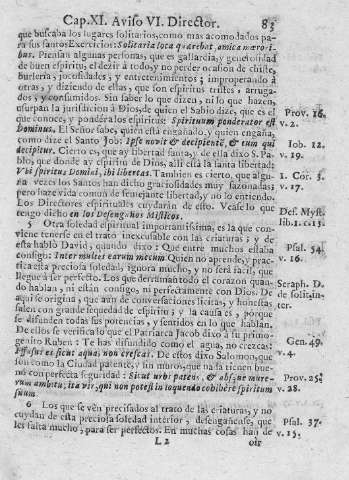 Cap.XI. Aviso VI. Director. 83
que buscaba los lugares solitarios, como mas acomodados pa-
ra sus santos Exercicios: Solitaria loca quærebat, amica mero-ri-
bus. Piensan algunas personas, que es gallardia, y generosidad
de buen espiritu, el dezir à todo, y no perder ocasion de chiste,
burleria, jocosidades, y entretenimientos; improperando à
otras, y diziendo de ellas, que son espiritus tristes, arruga-
dos, y consumidos. Sin saber lo que dizen, ni lo que hazen,
usurpan la jurisdicion à Dios, de quien el Sabio dize, que es el
que conoce, y pondèra los espiritus: Spirituum ponderator est
Dominus. El Señor sabe, quien està engañado, y quien engaña,
como dize el Santo Job: Ipse novit & decipientè, & eum qui
decipitur. Cierto es, que ay libertad santa, y de ella dixo S. Pa-
blo, que donde ay espiritu de Dios, allì està la santa libertad
Vbi spiritus Domini, ibi libertas. Tambien es cierto, que algu-
na vezes los Santos han dicho graciosidades muy sazonadas;
pero haze vida comun de semejante libertad, y no lo entiendo.
Los Directores espirituales cuydarán de esto. Vease lo que
tengo dicho en los Desengaños Misticos.
5 Otra soledad espiritual importantissima, es la que con-
viene tenerse en el trato inexcusable con las criaturas; y de
esta hablò David, quando dixo: Que entre muchos estaba
consigo: Inter multos eram mecum. Quien no aprende, y prac-
tica esta preciosa soledad, ignora mucho, y no serà facil, que
llegue à ser perfecto. Los que derraman todo el corazon quan-
do hablan, ni estàn consigo, ni perfectamente con Dios. De
aqui se origina, que aun de conversaciones licitas, y honestas
salen con grande sequedad de espiritu; y la causa es, porque
se difunden todas sus potencias, y sentidos en lo que hablan.
De ellos se verifica lo que el Patriarca Jacob dixo à su primo-
genito Ruben: Te has difundido como el agua, no crezcas:
Effusus es sicut aqua, non crescas. De estos dixo Salomon, que
son como la Ciudad patente, y sin muros, que no la tienen bue-
no con perfecta seguridad: Sicut urbs patens, & absque muro-
rum ambitu, ita vir, qui non potest in loquendo cohibère spiritum
suum.
6 Los que se vèn precisados al trato de las criaturas, y no
cuydan de esta preciosa soledad interior, desengañense, que
les falta mucho, para ser perfectos. En muchas cosas han de
L 2 oir
Prov. 16.
v. 2.
Iob. 12.
v. 19.
1. Cor. 3.
v. 17.
Des. Myst.
lib. 1. c. 15.
Psal. 54.
v. 16.
Seraph. D.
de solit. in-
ter.
Gen. 49.
v. 4.
Prov. 25.
v. 28.
Psal. 37.
v. 15.